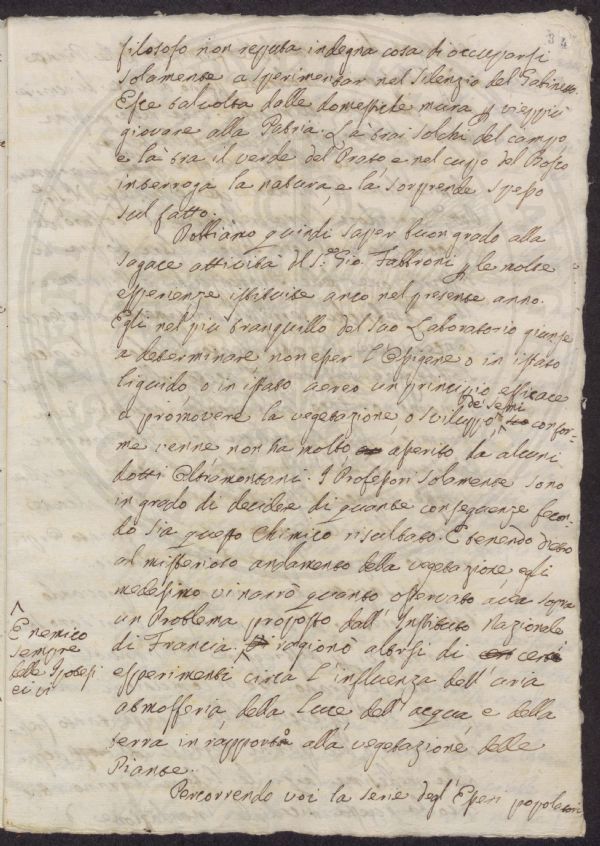 34
filosofo non reputa indegna cosa di occuparsi
solamente a sperimentar nel silenzio del Gabinetto.
Esce talvolta dalle domestiche mura p vieppiù
giovare alla Patria. Là trai solchi del campo
e là tra il verde del Prato e nel cupo del Bosco
interroga la natura, e la sorprende spesso
sul fatto.
Dobbiamo quindi saper buon grado alla
sagace attività del Sr. Gio. Fabbroni p le molte
esperienze istituite anco nel presente anno.
Egli nel più tranquillo del suo Laboratorio giunse
a determinare non esser l'Ossigene o in istato
liquido, o in istato aereo un principio efficace
a promovere la vegetazione, o sviluppo de' semi confor-
me venne non ha molto asserito da alcuni
dotti Oltramontani. I Professori solamente sono
in grado di decidere di quante conseguenze fecon-
do sia questo Chimico risultato. E tenendo dietro
al misterioso andamento della vegetazione egli
medesimo vi narrò quanto osservato avea sopra
un Problema proposto dall'Instituto Nazionale
di Francia. ^ ragionò altresì di certi
^ E nemico
sempre
delle Ipotesi
ci vi
esperimenti circa l'influenza dell'aria
atmosferia della luce dell'acqua e della
terra in rapporto alla vegetazione delle
Piante.
Percorrendo voi la serie degl'Esseri popolatori